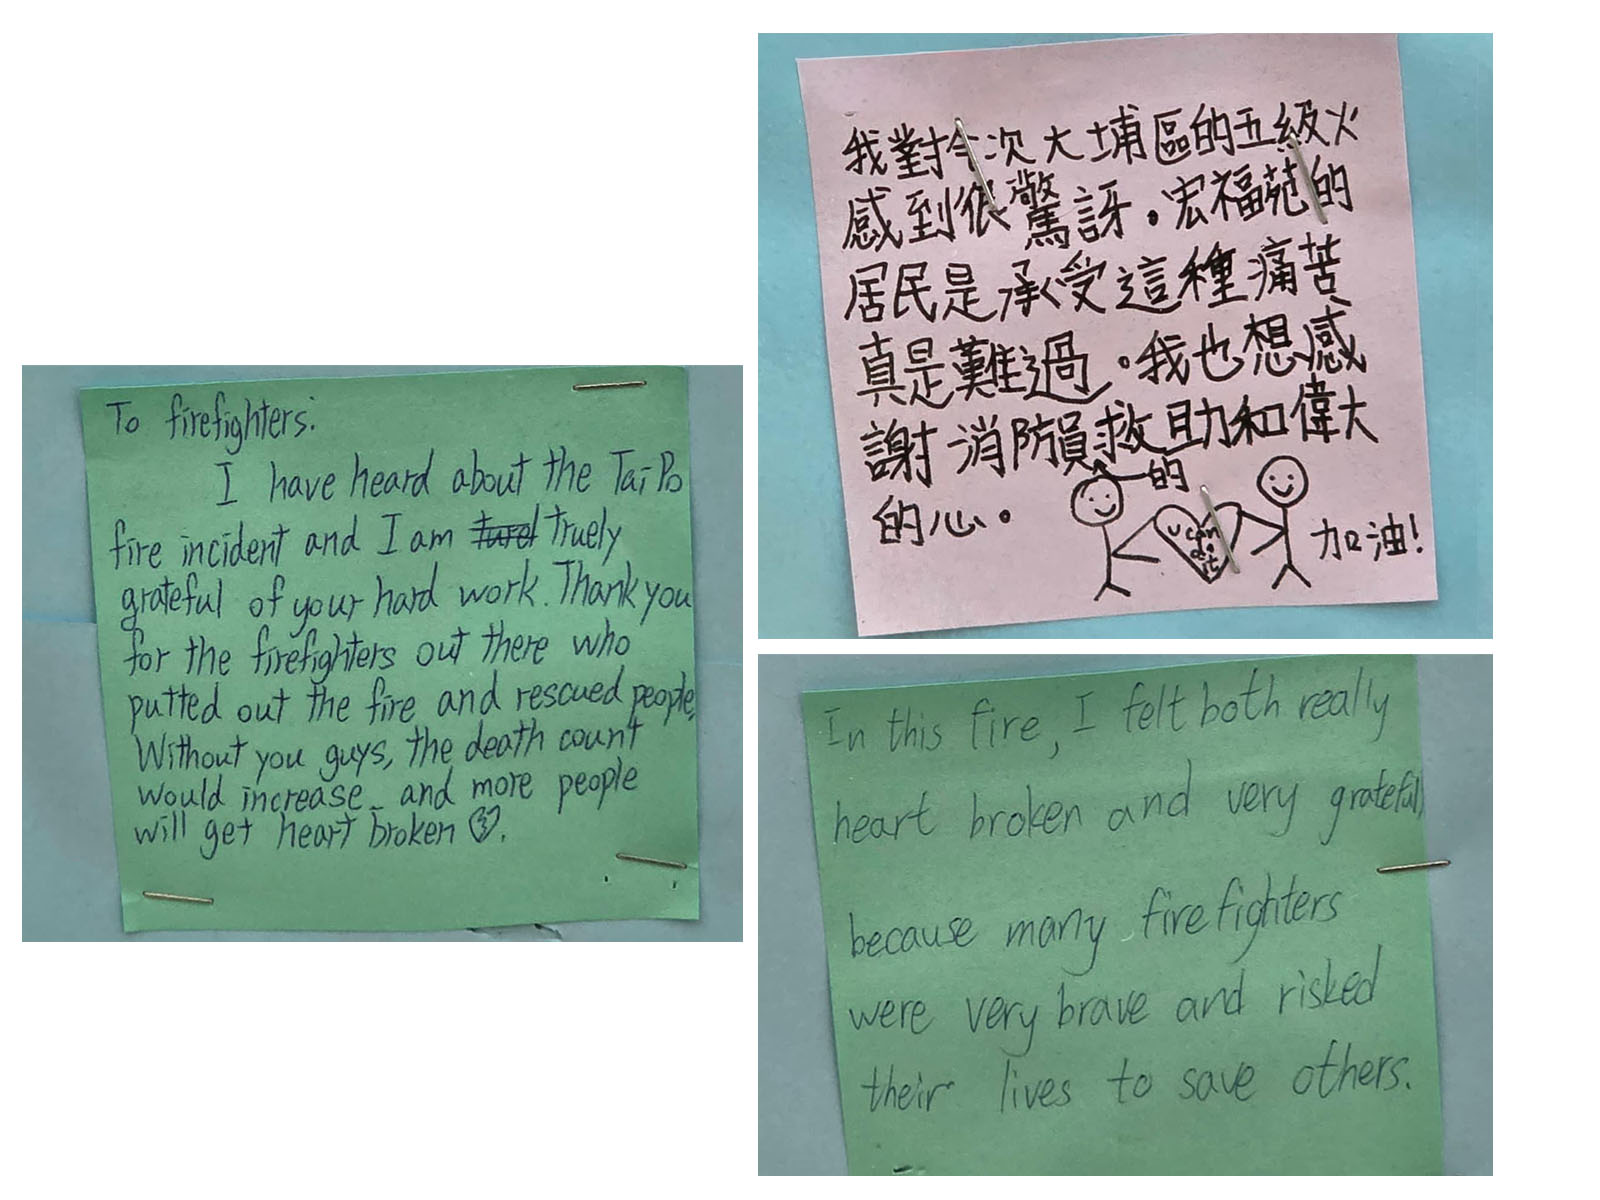 To firefighters:
I have heard about the Tai Po
fire incident and I am truely
grateful of your hard work. Thank you
for the firefighters out there who
putted out the fire and rescued people.
Without you guys, the death count
would increase and more people
will get heart broken
我對今次大埔區的五級火
感到很驚訝。宏福苑的
居民是承受這種痛苦、
真是難過。我也想感
謝消防員救助和偉大
的
的心。
u can do it
加油!
In this fire, I felt both really
heart broken and very grateful,
because many firefighters
were very brave and risked
their lives to save others.